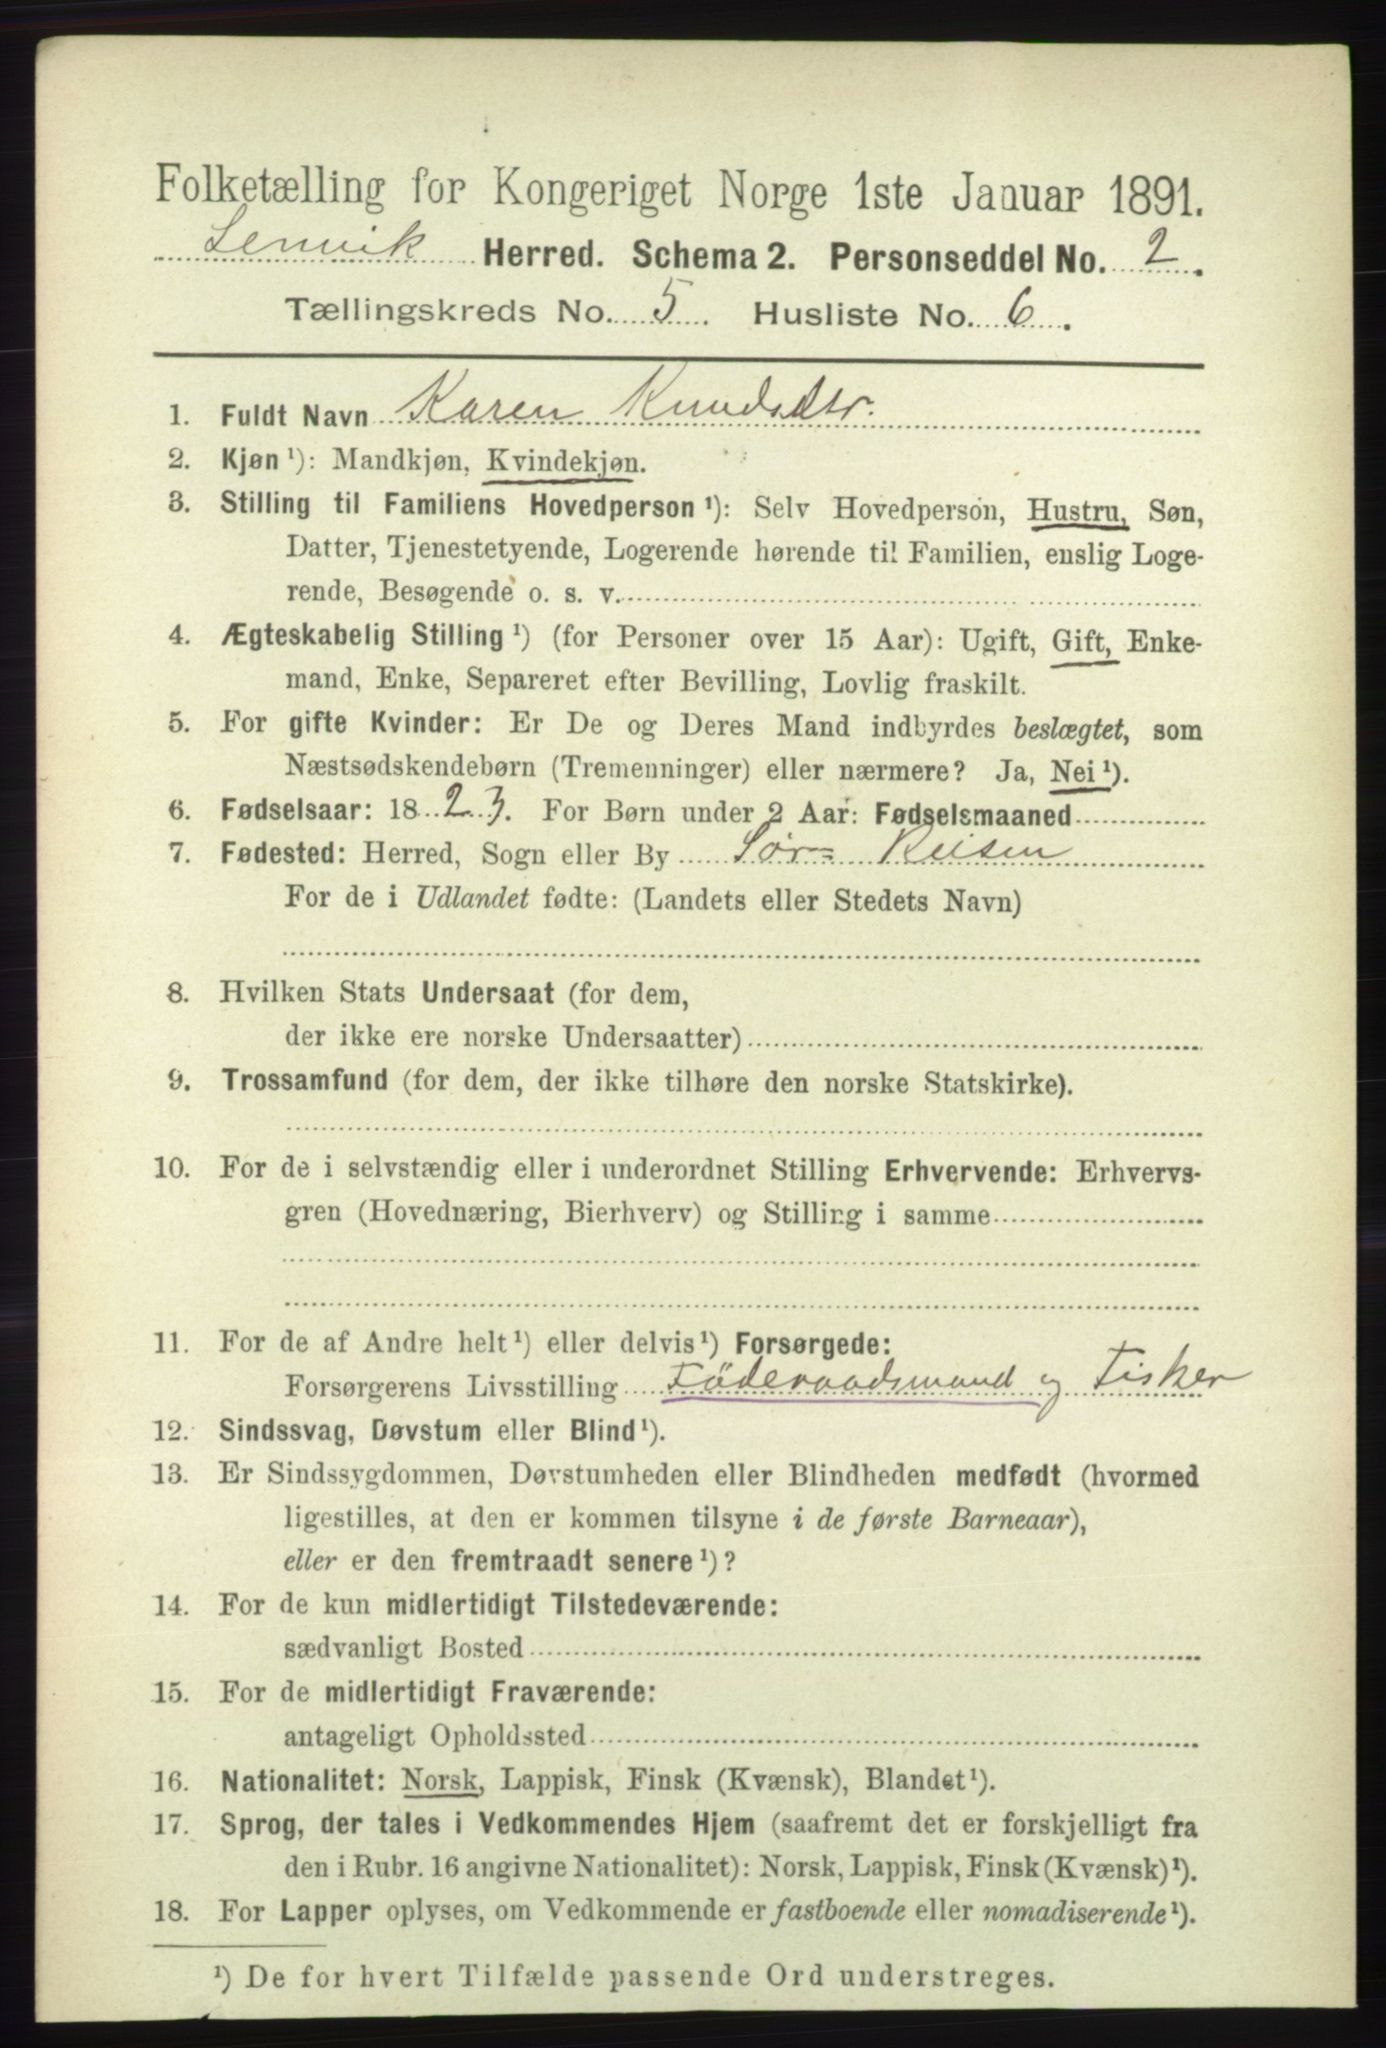 Folketælling for Kongeriget Norge 1ste Januar 1891.
Lenvik Herred. Schema 2. Personseddel No. 2.
Tællingskreds No. 5. Husliste No. 6.
1. Fuldt Navn Karen Knudsdtr.
2. Kjøn ¹): Mandkjøn, Kvindekjøn.
3. Stilling til Familiens Hovedperson ¹): Selv Hovedperson, Hustru, Søn,
Datter, Tjenestetyende, Logerende hørende til Familien, enslig Loge-
rende, Besøgende o. s. v.
4. Ægteskabelig Stilling ¹) (for Personer over 15 Aar): Ugift, Gift, Enke-
mand, Enke, Separeret efter Bevilling, Lovlig fraskilt.
5. For gifte Kvinder: Er De og Deres Mand indbyrdes beslægtet, som
Næstsødskendebørn (Tremenninger) eller nærmere? Ja, Nei ¹).
6. Fødselsaar: 1823. For Børn under 2 Aar: Fødselsmaaned
7. Fødested: Herred, Sogn eller By Sør-Reisen
For de i Udlandet fødte: (Landets eller Stedets Navn)
8. Hvilken Stats Undersaat (for dem,
der ikke ere norske Undersaatter)
9. Trossamfund (for dem, der ikke tilhøre den norske Statskirke).
10. For de i selvstændig eller i underordnet Stilling Erhvervende: Erhvervs-
gren (Hovednæring, Bierhverv) og Stilling i samme
11. For de af Andre helt ¹) eller delvis ¹) Forsørgede:
Forsørgerens Livsstilling Føderaadsmand og Fisker
12. Sindssvag, Døvstum eller Blind ¹).
13. Er Sindssygdommen, Døvstumheden eller Blindheden medfødt (hvormed
ligestilles, at den er kommen tilsyne i de første Barneaar),
eller er den fremtraadt senere ¹)?
14. For de kun midlertidigt Tilstedeværende:
sædvanligt Bosted
15. For de midlertidigt Fraværende:
antageligt Opholdssted
16. Nationalitet: Norsk, Lappisk, Finsk (Kvænsk), Blandet ¹).
17. Sprog, der tales i Vedkommendes Hjem (saafremt det er forskjelligt fra
den i Rubr. 16 angivne Nationalitet): Norsk, Lappisk, Finsk (Kvænsk) ¹).
18. For Lapper oplyses, om Vedkommende er fastboende eller nomadiserende ¹).
¹) De for hvert Tilfælde passende Ord understreges.